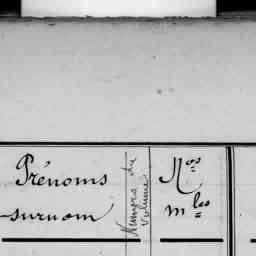 Prénoms
surnom
Numéro du
volume
Nos
mles